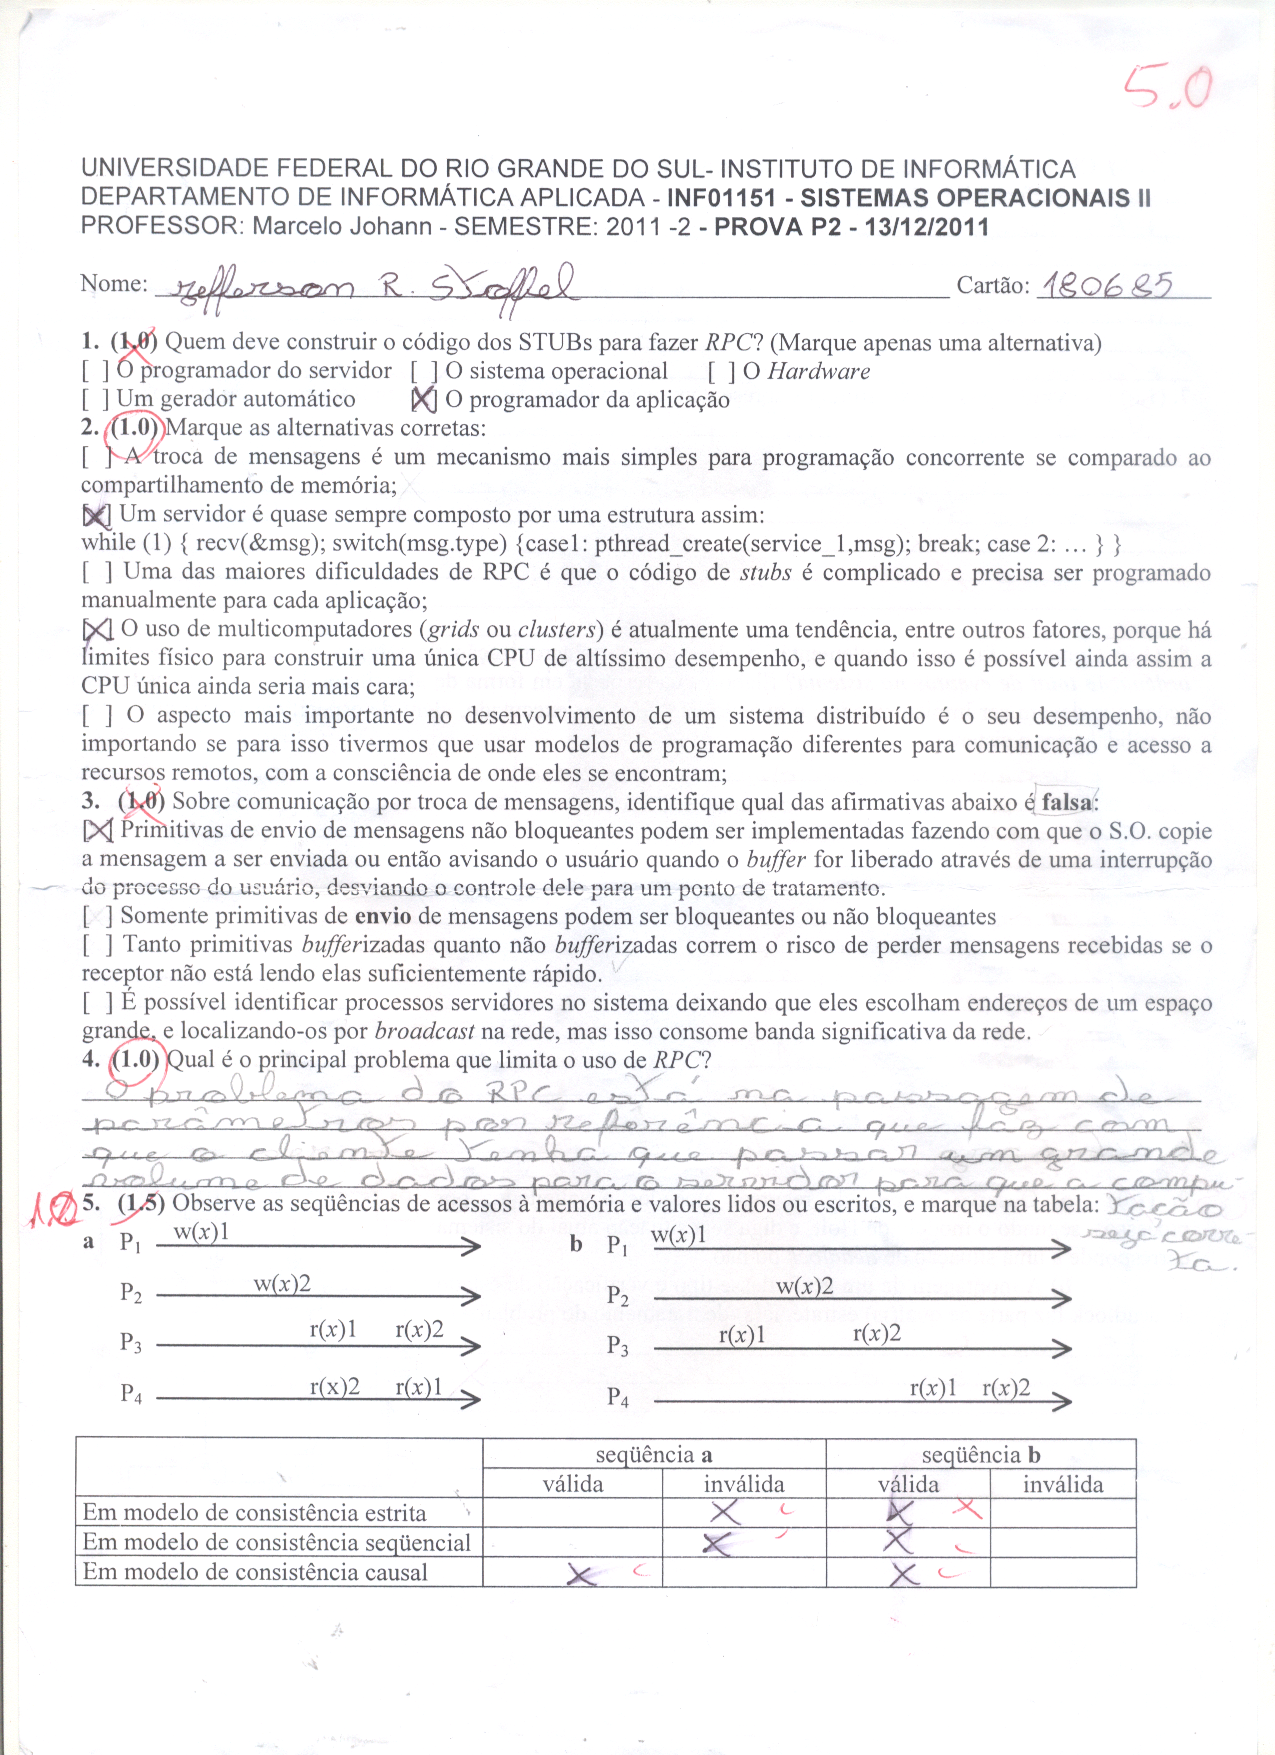 5.0
UNIVERSIDADE FEDERAL DO RIO GRANDE DO SUL- INSTITUTO DE INFORMÁTICA
DEPARTAMENTO DE INFORMÁTICA APLICADA - INF01151 - SISTEMAS OPERACIONAIS II
PROFESSOR: Marcelo Johann - SEMESTRE: 2011 -2 - PROVA P2 - 13/12/2011
Nome: Jefferson R. Stoffel Cartão: 180685
1. (1.0) Quem deve construir o código dos STUBs para fazer RPC? (Marque apenas uma alternativa)
[ ] O programador do servidor [ ] O sistema operacional [ ] O Hardware
[ ] Um gerador automático [X] O programador da aplicação
2. (1.0) Marque as alternativas corretas:
[ ] A troca de mensagens é um mecanismo mais simples para programação concorrente se comparado ao
compartilhamento de memória;
[X] Um servidor é quase sempre composto por uma estrutura assim:
while (1) { recv(&msg); switch(msg.type) {case1: pthread_create(service_1,msg); break; case 2: … } }
[ ] Uma das maiores dificuldades de RPC é que o código de stubs é complicado e precisa ser programado
manualmente para cada aplicação;
[X] O uso de multicomputadores (grids ou clusters) é atualmente uma tendência, entre outros fatores, porque há
limites físico para construir uma única CPU de altíssimo desempenho, e quando isso é possível ainda assim a
CPU única ainda seria mais cara;
[ ] O aspecto mais importante no desenvolvimento de um sistema distribuído é o seu desempenho, não
importando se para isso tivermos que usar modelos de programação diferentes para comunicação e acesso a
recursos remotos, com a consciência de onde eles se encontram;
3. (1.0) Sobre comunicação por troca de mensagens, identifique qual das afirmativas abaixo é falsa:
[X] Primitivas de envio de mensagens não bloqueantes podem ser implementadas fazendo com que o S.O. copie
a mensagem a ser enviada ou então avisando o usuário quando o buffer for liberado através de uma interrupção
do processo do usuário, desviando o controle dele para um ponto de tratamento.
[ ] Somente primitivas de envio de mensagens podem ser bloqueantes ou não bloqueantes
[ ] Tanto primitivas bufferizadas quanto não bufferizadas correm o risco de perder mensagens recebidas se o
receptor não está lendo elas suficientemente rápido.
[ ] É possível identificar processos servidores no sistema deixando que eles escolham endereços de um espaço
grande, e localizando-os por broadcast na rede, mas isso consome banda significativa da rede.
4. (1.0) Qual é o principal problema que limita o uso de RPC?
O problema do RPC está na passagem de
parâmetros por referência que faz com
que o cliente tenha que passar um grande
volume de dados para o servidor para que a compu-
1.0 5. (1.5) Observe as seqüências de acessos à memória e valores lidos ou escritos, e marque na tabela: tação
seja corre-
ta.
a P1 w(x)1 b P1 w(x)1
P2 w(x)2 P2 w(x)2
P3 r(x)1 r(x)2 P3 r(x)1 r(x)2
P4 r(x)2 r(x)1 P4 r(x)1 r(x)2
seqüência a seqüência b
válida inválida válida inválida
Em modelo de consistência estrita X X X
Em modelo de consistência seqüencial X X
Em modelo de consistência causal X X